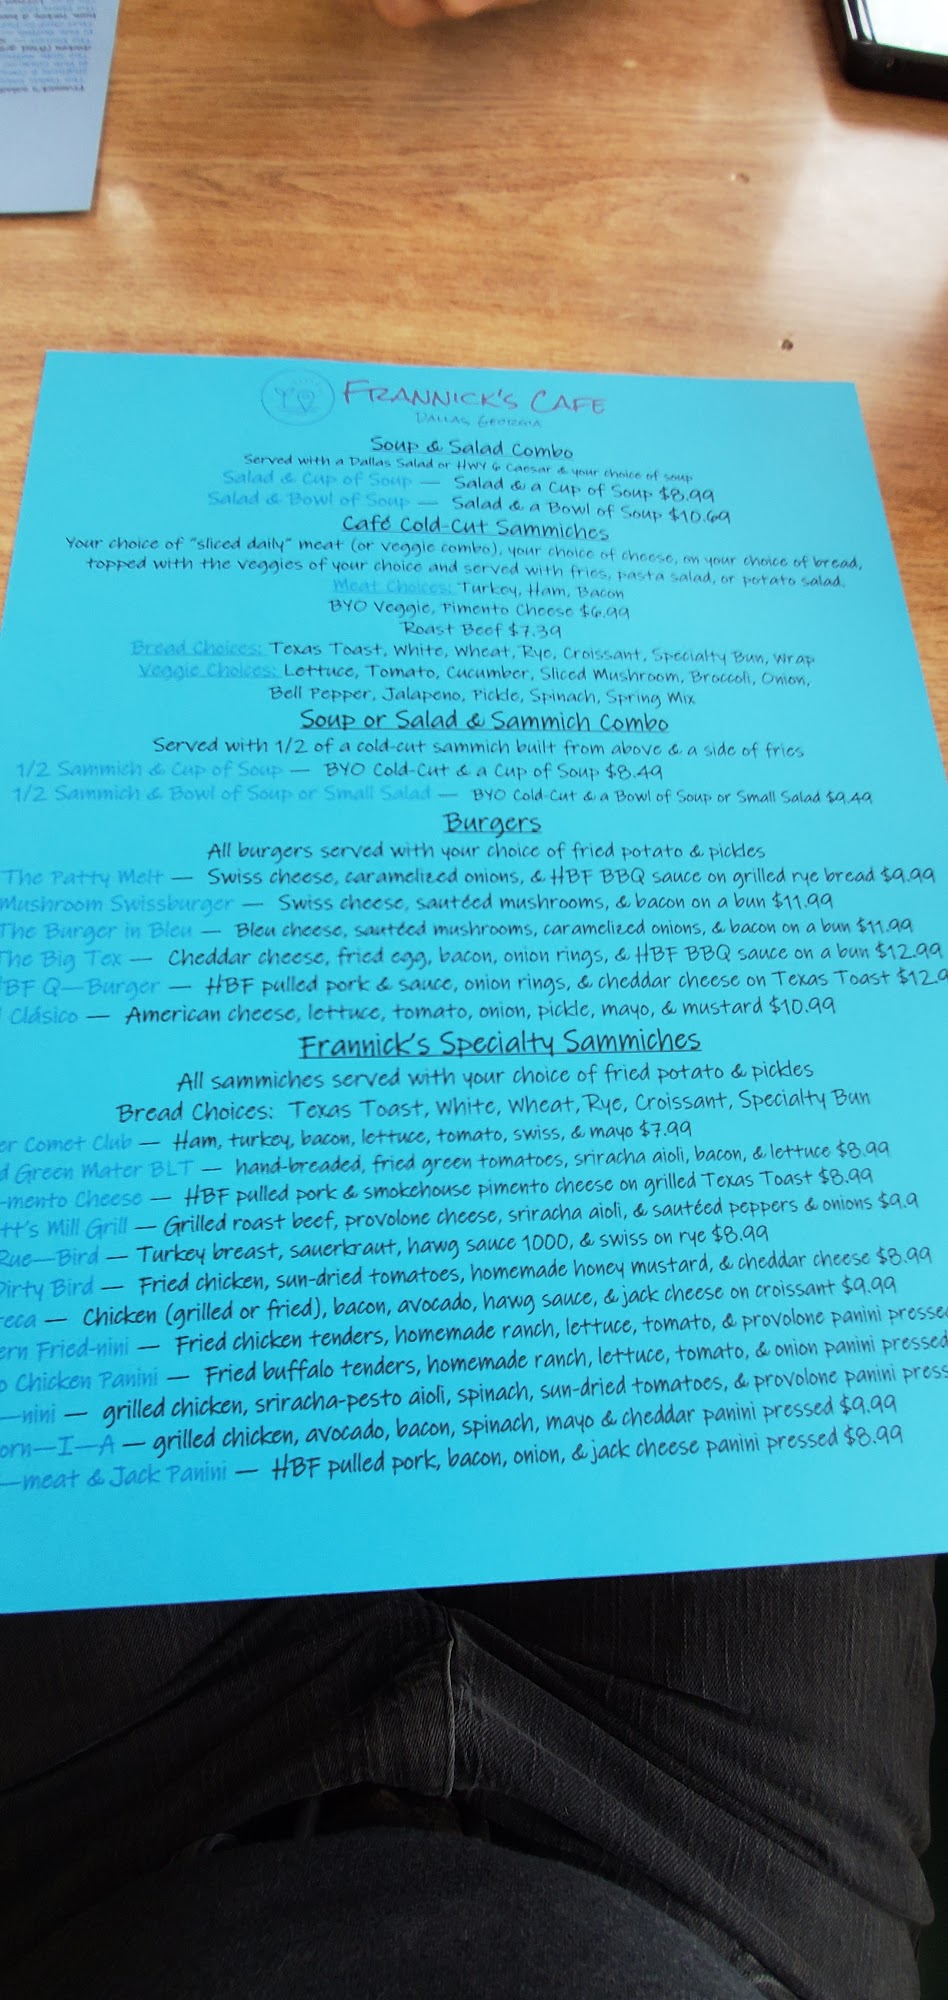 FRANNICK'S CAFE
DALLAS, GEORGIA
Soup & Salad Combo
Served with a Dallas Salad or HWY 6 Caesar & your choice of soup
Salad & Cup of Soup — Salad & a Cup of Soup $8.99
Salad & Bowl of Soup — Salad & a Bowl of Soup $10.69
Café Cold-Cut Sammiches
Your choice of "sliced daily" meat (or veggie combo), your choice of cheese, on your choice of bread,
topped with the veggies of your choice and served with fries, pasta salad, or potato salad.
Meat Choices: Turkey, Ham, Bacon
BYO Veggie, Pimento Cheese $6.99
Roast Beef $7.39
Bread Choices: Texas Toast, White, Wheat, Rye, Croissant, Specialty Bun, Wrap
Veggie Choices: Lettuce, Tomato, Cucumber, Sliced Mushroom, Broccoli, Onion,
Bell Pepper, Jalapeno, Pickle, Spinach, Spring Mix
Soup or Salad & Sammich Combo
Served with 1/2 of a cold-cut sammich built from above & a side of fries
1/2 Sammich & Cup of Soup — BYO Cold-Cut & a Cup of Soup $8.49
1/2 Sammich & Bowl of Soup or Small Salad — BYO Cold-Cut & a Bowl of Soup or Small Salad $9.49
Burgers
All burgers served with your choice of fried potato & pickles
The Patty Melt — Swiss cheese, caramelized onions, & HBF BBQ sauce on grilled rye bread $9.99
Mushroom Swissburger — Swiss cheese, sautéed mushrooms, & bacon on a bun $11.99
The Burger in Bleu — Bleu cheese, sautéed mushrooms, caramelized onions, & bacon on a bun $11.99
The Big Tex — Cheddar cheese, fried egg, bacon, onion rings, & HBF BBQ sauce on a bun $12.99
BF Q—Burger — HBF pulled pork & sauce, onion rings, & cheddar cheese on Texas Toast $12.9
Clásico — American cheese, lettuce, tomato, onion, pickle, mayo, & mustard $10.99
Frannick's Specialty Sammiches
All sammiches served with your choice of fried potato & pickles
Bread Choices: Texas Toast, White, Wheat, Rye, Croissant, Specialty Bun
er Comet Club — Ham, turkey, bacon, lettuce, tomato, swiss, & mayo $7.99
d Green Mater BLT — hand-breaded, fried green tomatoes, sriracha aioli, bacon, & lettuce $8.99
-mento Cheese — HBF pulled pork & smokehouse pimento cheese on grilled Texas Toast $8.99
tt's Mill Grill — Grilled roast beef, provolone cheese, sriracha aioli, & sautéed peppers & onions $9.9
Rue—Bird — Turkey breast, sauerkraut, hawg sauce 1000, & swiss on rye $8.99
Dirty Bird — Fried chicken, sun-dried tomatoes, homemade honey mustard, & cheddar cheese $8.99
eca — Chicken (grilled or fried), bacon, avocado, hawg sauce, & jack cheese on croissant $9.99
ern Fried-nini — Fried chicken tenders, homemade ranch, lettuce, tomato, & provolone panini presse
o Chicken Panini — Fried buffalo tenders, homemade ranch, lettuce, tomato, & onion panini pressed
—nini — grilled chicken, sriracha-pesto aioli, spinach, sun-dried tomatoes, & provolone panini press
orn—I—A — grilled chicken, avocado, bacon, spinach, mayo & cheddar panini pressed $9.99
—meat & Jack Panini — HBF pulled pork, bacon, onion, & jack cheese panini pressed $8.99